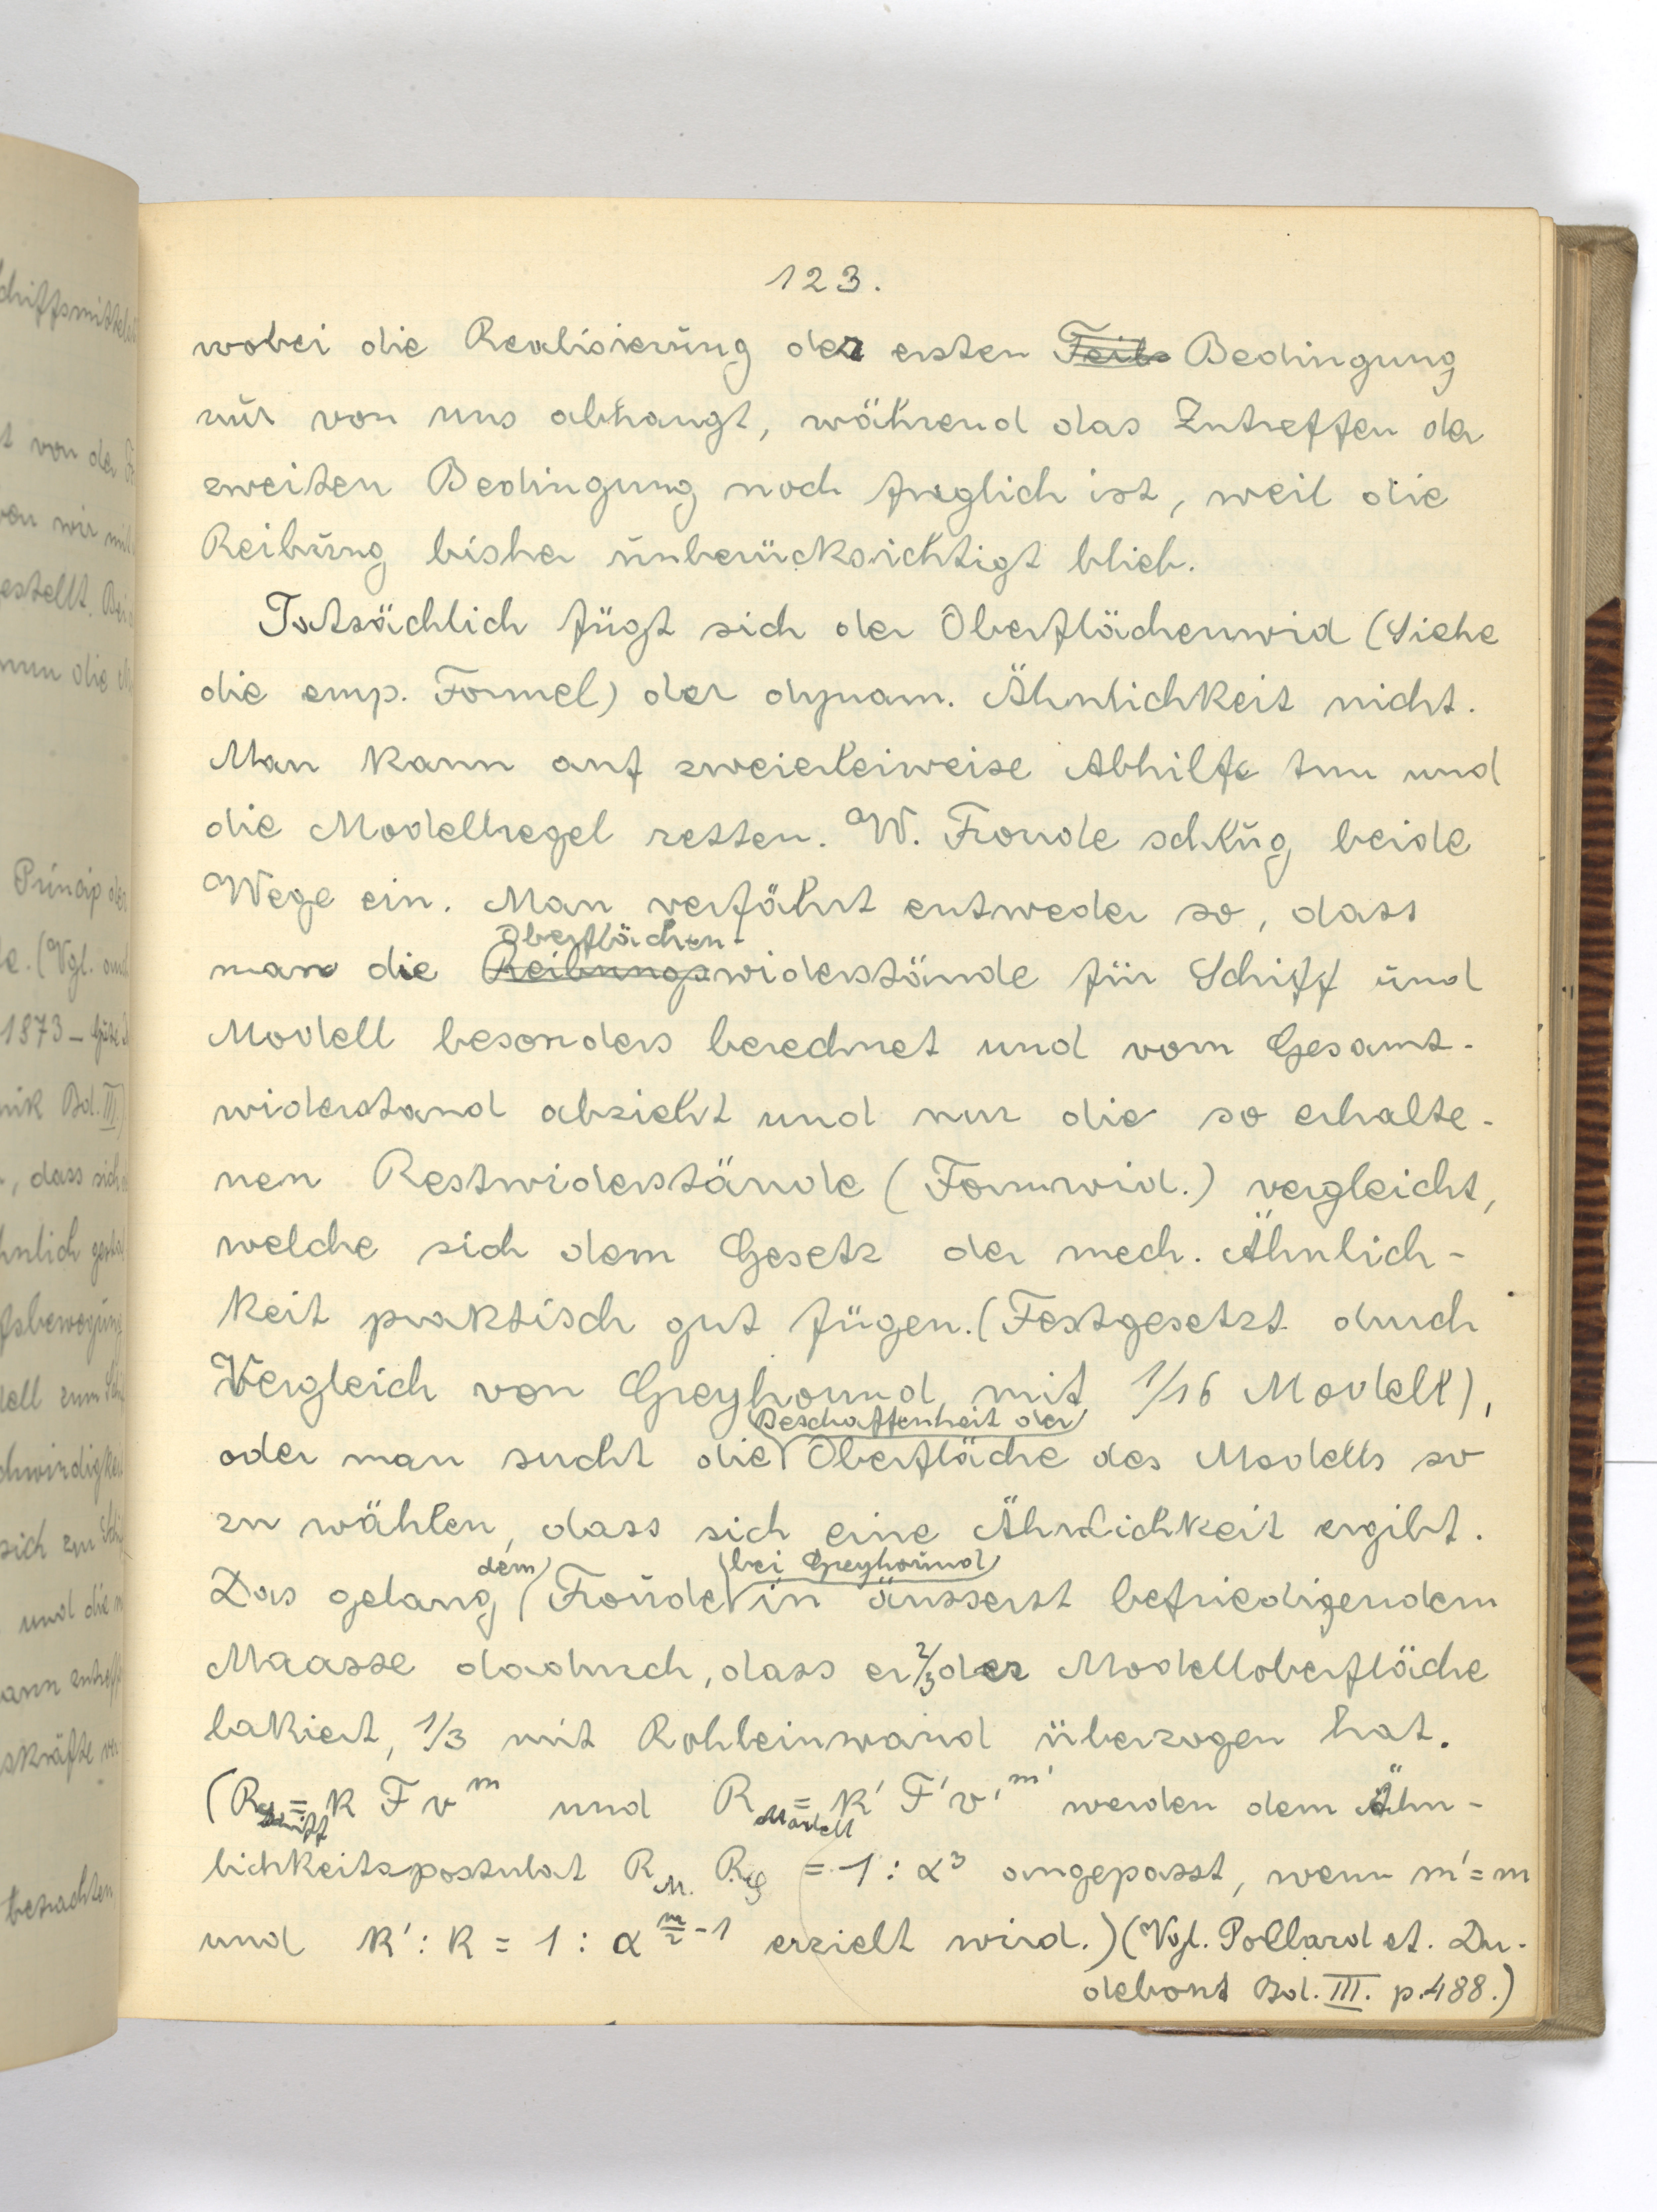 123.
wobei die Realisierung der ersten Teils Bedingung
nur von uns abhangt, während das Zutreffen der
zweiten Bedingung noch fraglich ist, weil die
Reibung bisher unberücksichtigt blieb.
Tatsächlich fügt sich der Oberflächenwid (Siehe
die emp. Formel) der dynam. Ähnlichkeit nicht.
Man kann auf zweierleiweise Abhilfe tun und
die Modellregel retten. W. Froude schlug beide
Wege ein. Man verfährt entweder so, dass
Oberflächen-
man die Reibungswiderstände für Schiff und
Modell besonders berechnet und vom Gesamt-
widerstand abzieht und nur die so erhalte-
nen Restwiderstände (Formwid.) vergleicht,
welche sich dem Gesetz der mech. Ähnlich-
keit praktisch gut fügen. (Festgesetzt durch
Vergleich von Greyhound mit 1/16 Modell),
Beschaffenheit der
oder man sucht die Oberfläche des Modells so
zu wählen, dass sich eine Ähnlichkeit ergibt.
dem bei Greyhound
Das gelang Froude in äusserst befriedigendem
Maasse dadurch, dass er 2/3 der Modelloberfläche
lakiert, 1/3 mit Rohleinwand überzogen hat.
(R_Schiff = k F v^m und R_Modell = k' F' v'^m' werden dem Ähn-
lichkeitspostulat R_M. R_S = 1 : α³ angepasst, wenn m' = m
und k' : k = 1 : α^(m/2 - 1) erzielt wird.) (Vgl. Pollard et. Du-
debout Bd. III. p. 488.)
chiffsmittel
t von der
von wir mit
estellt. Bei
nun die
Princip der
e. (Vgl. auch
1873 -
nik Bd. III)
, dass sich
hnlich
fsbewegung
dell zum
chwindigkei
sich zum
und die
ann
skräfte
betrachten